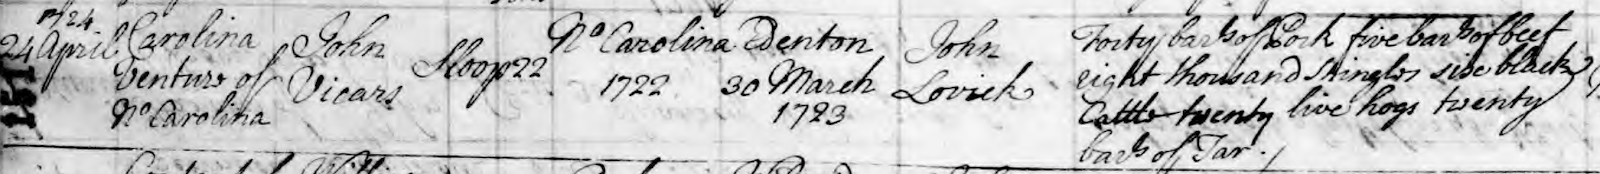 1724
24 April Carolina Venture of No Carolina
John Vicars
Sloop 22
No Carolina 1722
Edenton 30 March 1723
John Lovick
Forty barls of Pork five barls of beef
eight thousand shingles six black
Cattle twenty live hogs twenty
barls of Tar.
151